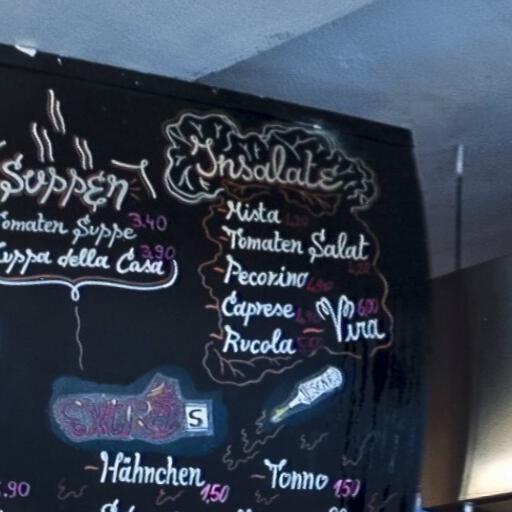 Suppen
Tomaten Suppe 3.40
Zuppa della Casa 3.90
Insalate
- Mista
- Tomaten Salat
- Pecorino
- Caprese
- Rucola
Vira 6,00
EXTRAS
- Hähnchen 1,50
- Tonno 1,50
.90